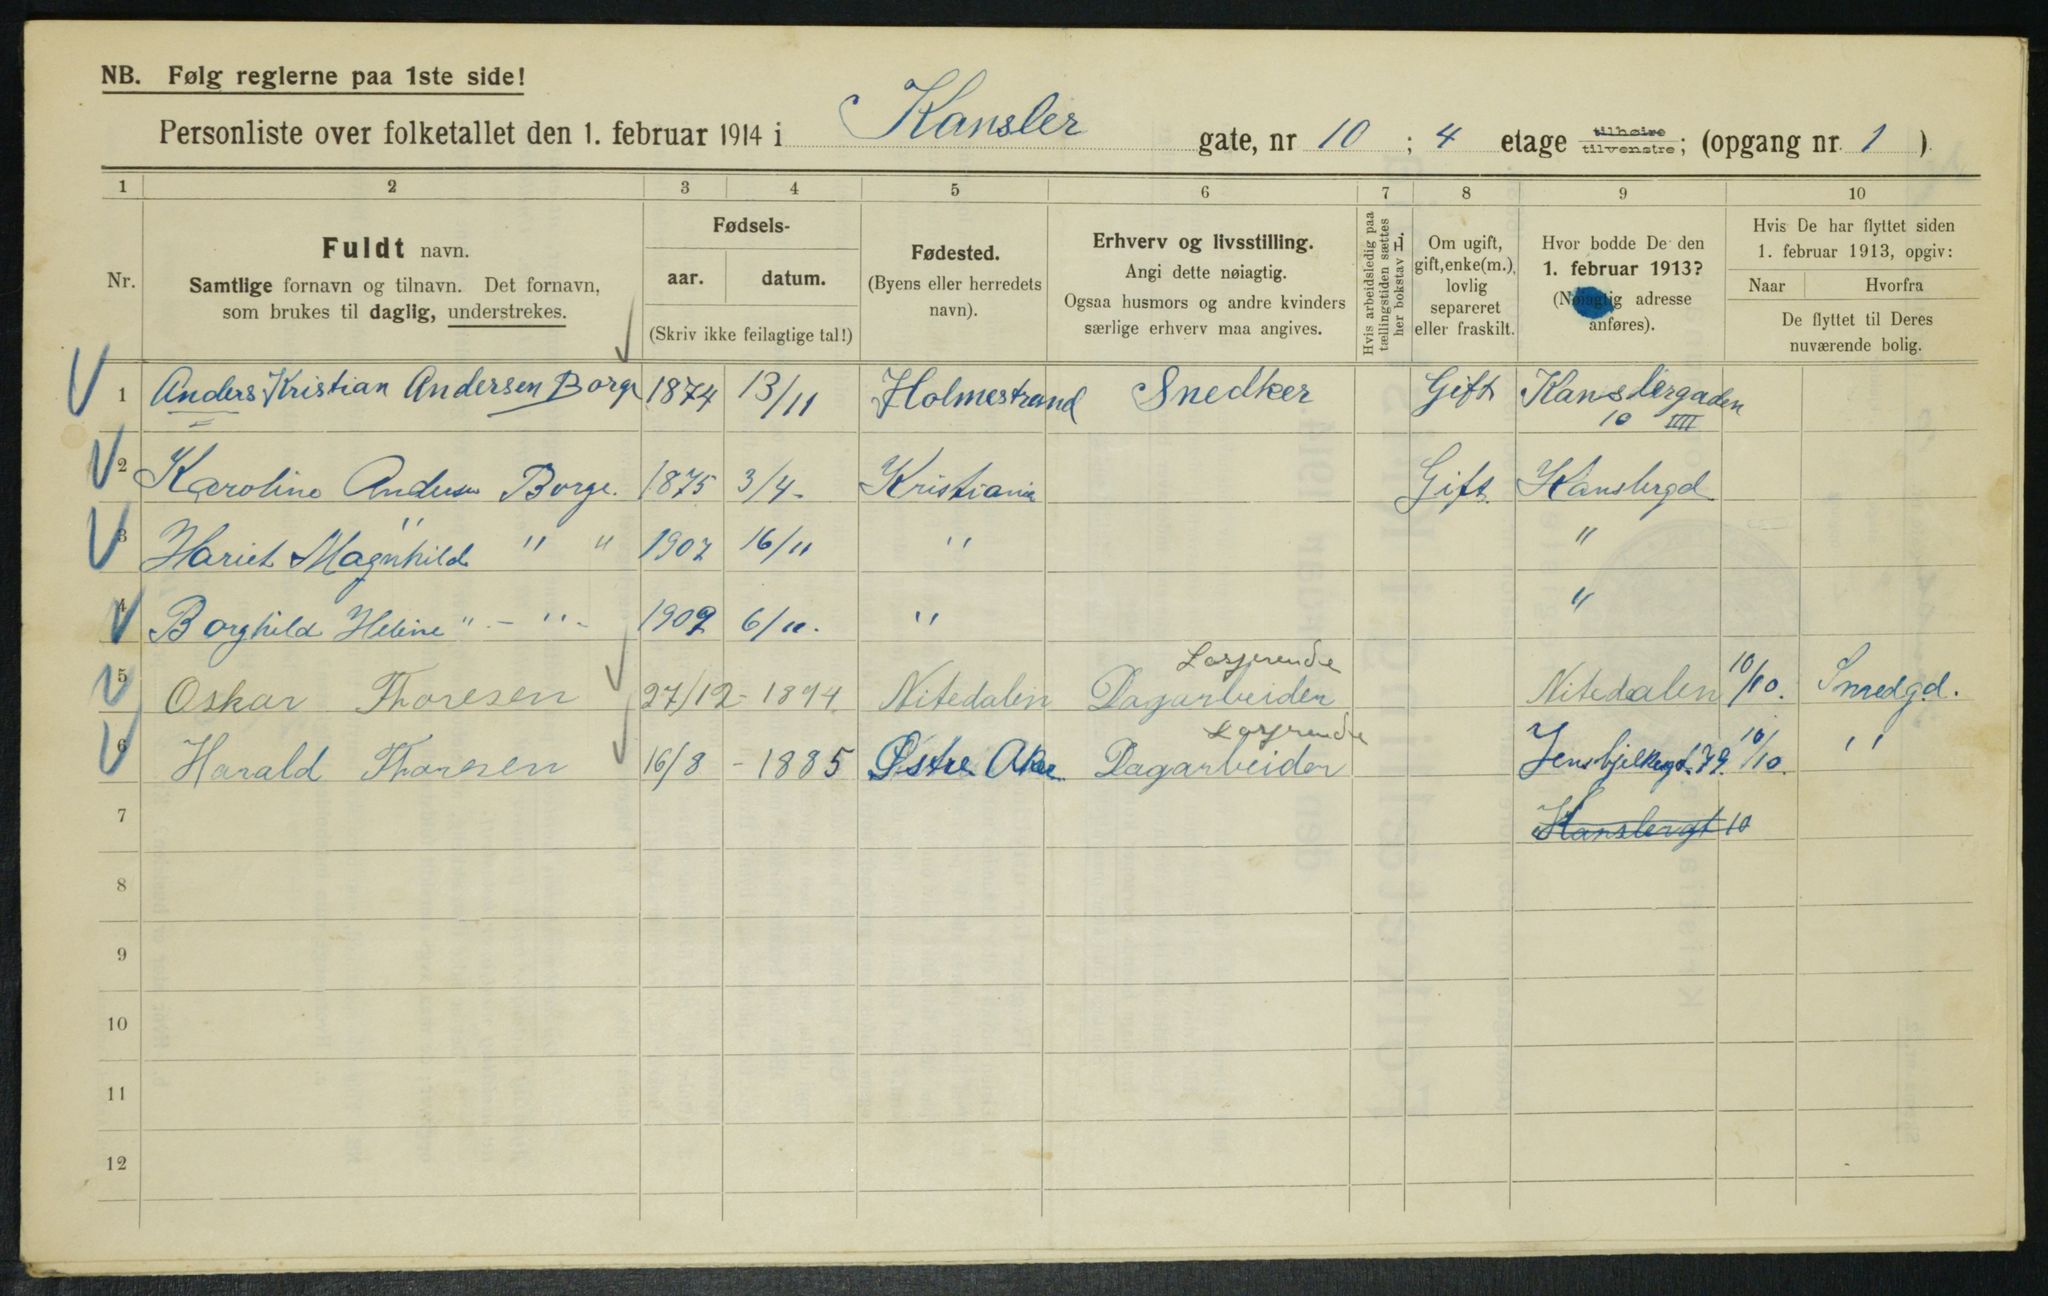 NB. Følg reglerne paa 1ste side!
Personliste over folketallet den 1. februar 1914 i Kansler gate, nr 10 ; 4 etage tilhøire tilvenstre; (opgang nr. 1 ).
1 2 3 4 5 6 7 8 9 10
Nr.
Fuldt navn.
Samtlige fornavn og tilnavn. Det fornavn,
som brukes til daglig, understrekes.
Fødsels-
aar. datum.
(Skriv ikke feilagtige tal!)
Fødested.
(Byens eller herredets
navn).
Erhverv og livsstilling.
Angi dette nøiagtig.
Ogsaa husmors og andre kvinders
særlige erhverv maa angives.
Hvis arbeidsledig paa
tællingstiden sættes
her bokstav L.
Om ugift,
gift, enke(m.),
lovlig
separeret
eller fraskilt.
Hvor bodde De den
1. februar 1913?
(Nøiagtig adresse
anføres).
Hvis De har flyttet siden
1. februar 1913, opgiv:
Naar Hvorfra
De flyttet til Deres
nuværende bolig.
1 Anders Kristian Andersen Borge 1874 13/11 Holmestrand Snedker Gift Kanslergaden
10 IIII
2 Karoline Andersen Borge. 1875 3/4 - Kristiania Gift. Kanslergd
3 Hariet Magnhild " " 1907 16/11 " "
4 Borghild Helene " - " - 1909 6/11. " "
Losjerende
5 Oskar Thoresen 27/12 - 1894 Nitedalen Dagarbeider Nitedalen 10/10. Smedgd.
Losjerende
6 Harald Thoresen 16/8 - 1885 Østre Aker Dagarbeider Jensbjelkesgt. 79. 10/10. "
7 Kanslergt 10
8
9
10
11
12